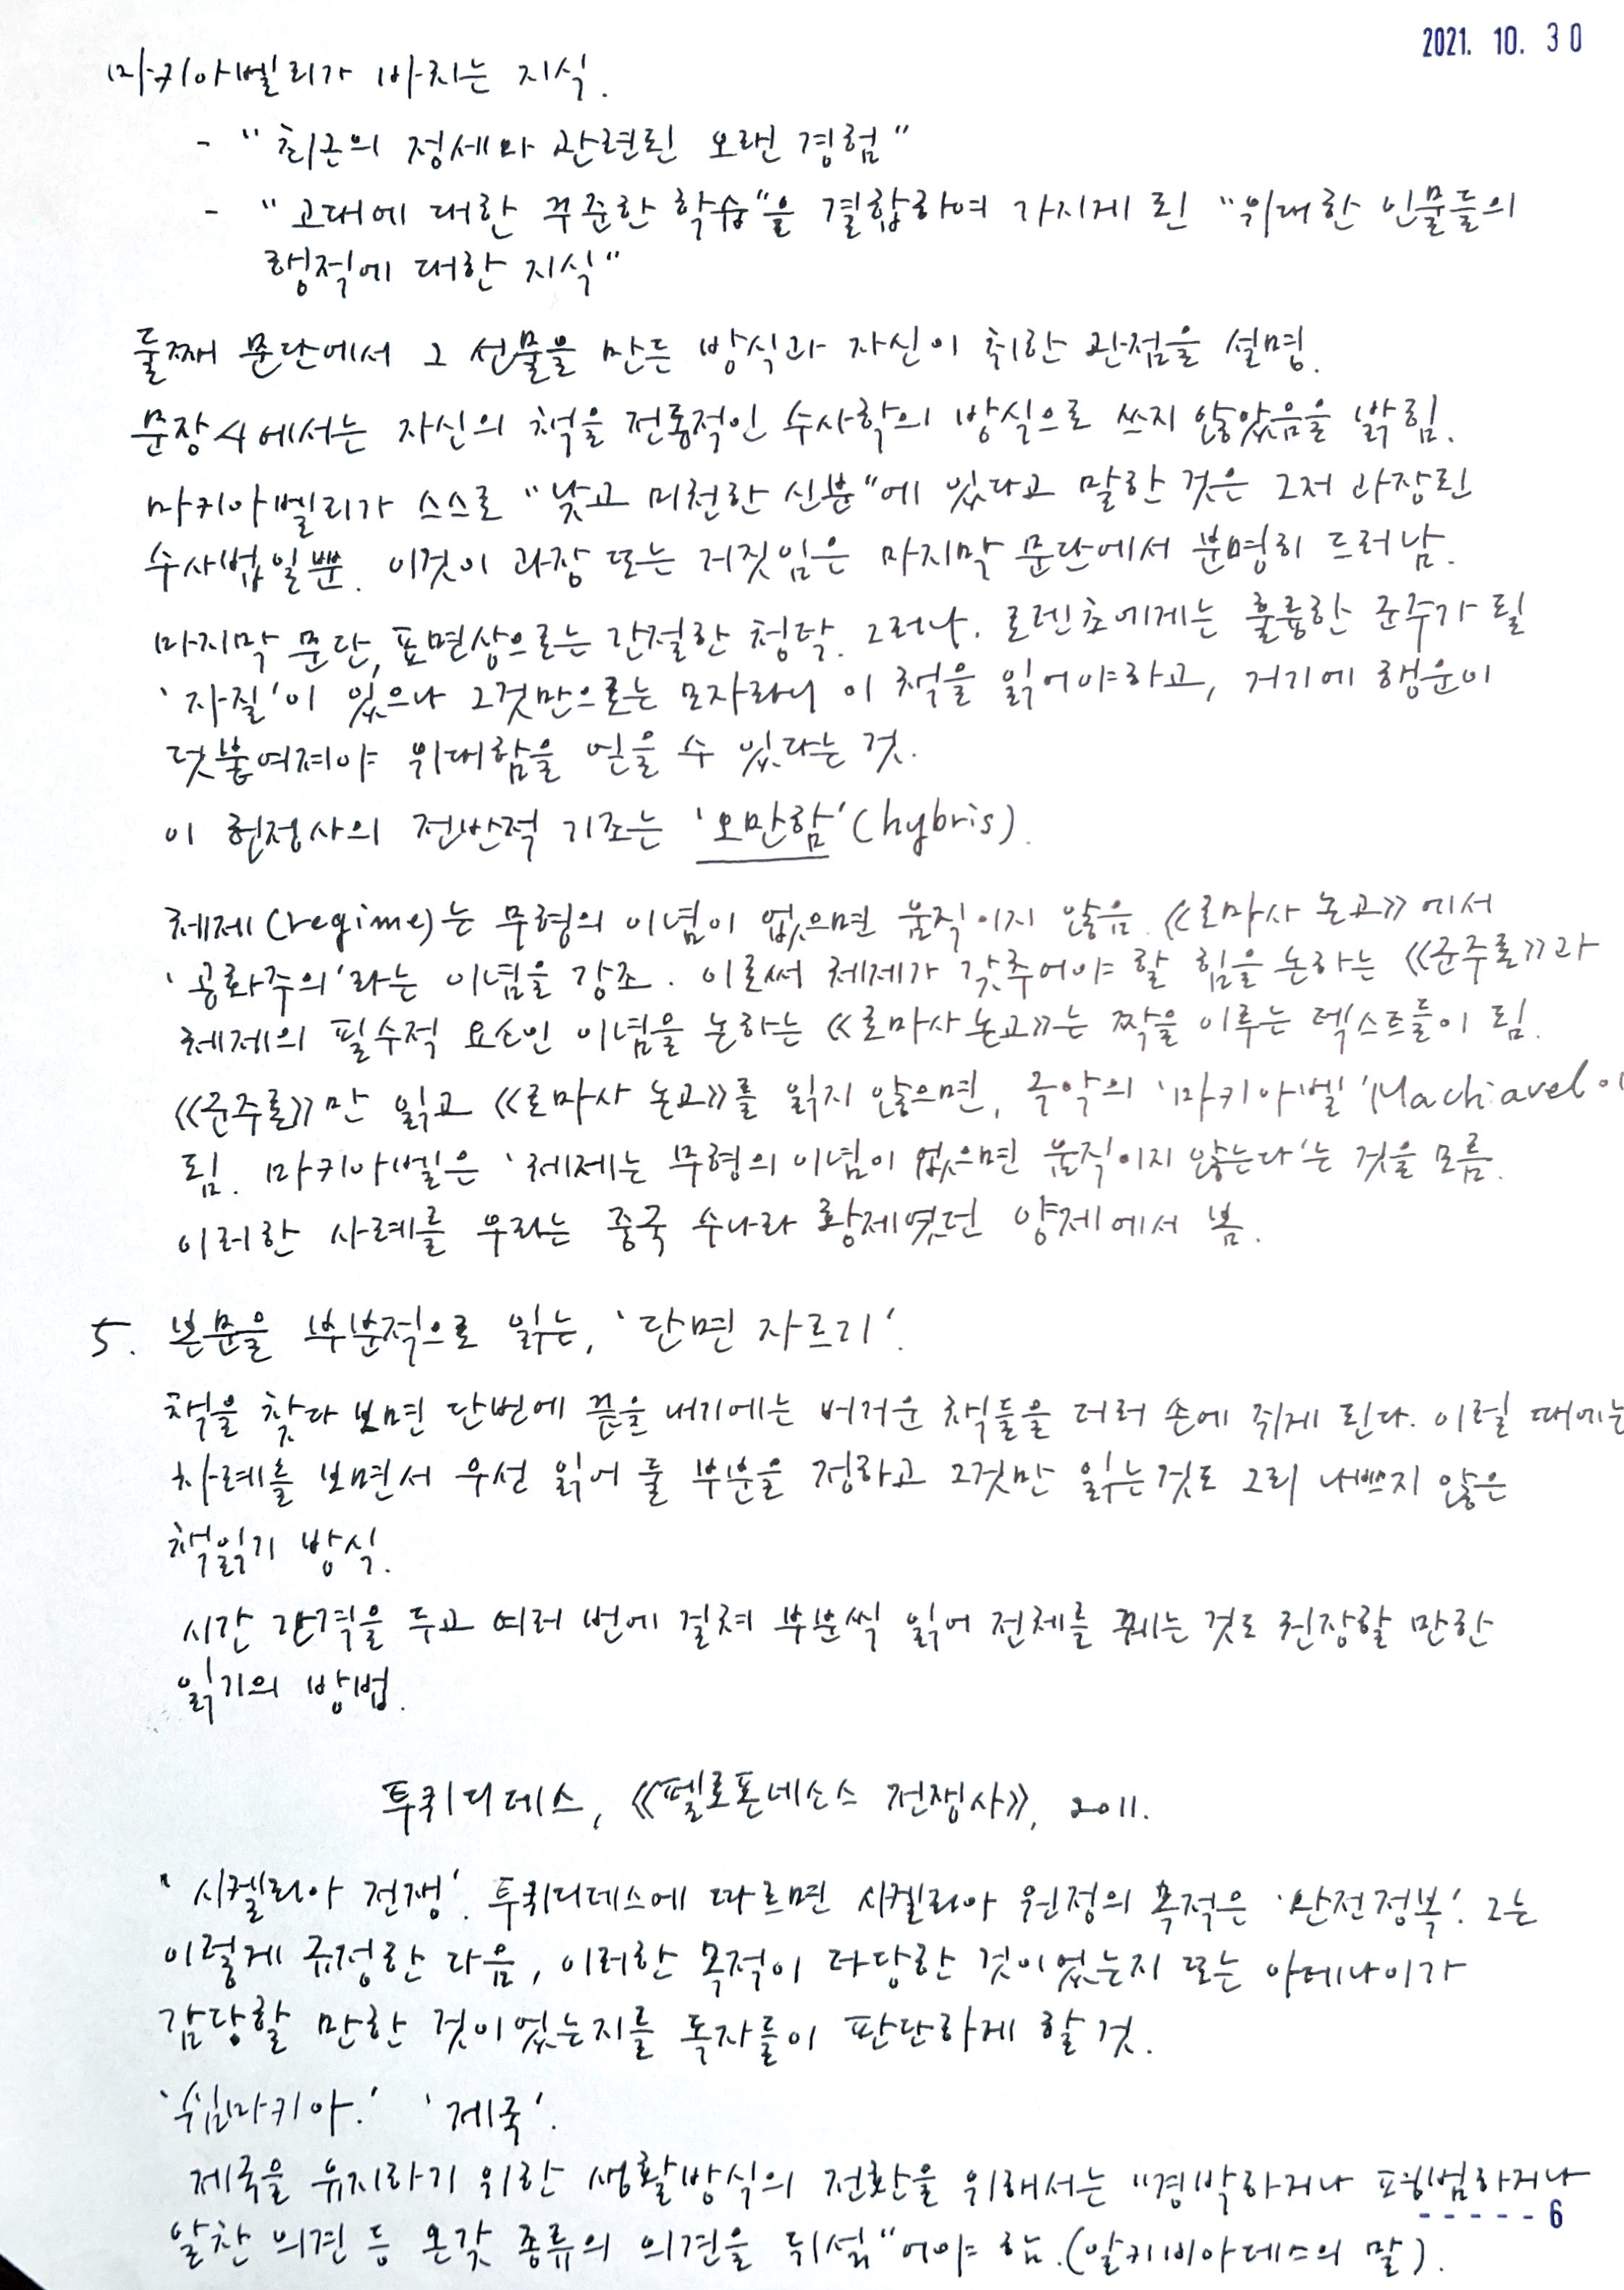 2021. 10. 30
마키아벨리가 바치는 지식.
- "최근의 정세와 관련된 오랜 경험"
- "고대에 대한 꾸준한 학습"을 결합하여 가지게 된 "위대한 인물들의
행적에 대한 지식"
둘째 문단에서 그 선물을 만든 방식과 자신이 취한 관점을 설명.
문장 4에서는 자신의 책을 전통적인 수사학의 방식으로 쓰지 않았음을 밝힘.
마키아벨리가 스스로 "낮고 미천한 신분"에 있다고 말한 것은 그저 과장된
수사법일뿐. 이것이 과장 또는 거짓임은 마지막 문단에서 분명히 드러남.
마지막 문단, 표면상으로는 간절한 청탁. 그러나. 로렌초에게는 훌륭한 군주가 될
'자질'이 있으나 그것만으로는 모자라니 이 책을 읽어야하고, 거기에 행운이
덧붙여져야 위대함을 얻을 수 있다는 것.
이 헌정사의 전반적 기조는 '오만함'(hybris).
체제(regime)는 무형의 이념이 없으면 움직이지 않음. 《로마사 논고》에서
'공화주의'라는 이념을 강조. 이로써 체제가 갖추어야 할 힘을 논하는 《군주론》과
체제의 필수적 요소인 이념을 논하는 《로마사 논고》는 짝을 이루는 텍스트들이 됨.
《군주론》만 읽고 《로마사 논고》를 읽지 않으면, 극악의 '마키아벨'Machiavel이
됨. 마키아벨은 '체제는 무형의 이념이 없으면 움직이지 않는다'는 것을 모름.
이러한 사례를 우리는 중국 수나라 황제였던 양제에서 봄.
5. 본문을 부분적으로 읽는, '단면 자르기'.
책을 찾다 보면 단번에 끝을 내기에는 버거운 책들을 더러 손에 쥐게 된다. 이럴 때에는
차례를 보면서 우선 읽어 둘 부분을 정하고 그것만 읽는것도 그리 나쁘지 않은
책읽기 방식.
시간 간격을 두고 여러 번에 걸쳐 부분씩 읽어 전체를 꿰는 것도 권장할 만한
읽기의 방법.
투퀴디데스, 《펠로폰네소스 전쟁사》, 2011.
'시켈리아 전쟁'. 투퀴디데스에 따르면 시켈리아 원정의 목적은 '완전정복'. 그는
이렇게 규정한 다음, 이러한 목적이 타당한 것이었는지 또는 아테나이가
감당할 만한 것이었는지를 독자들이 판단하게 할 것.
'쉼마키아.' '제국'.
제국을 유지하기 위한 생활방식의 전환을 위해서는 "경박하거나 평범하거나
알찬 의견 등 온갖 종류의 의견을 뒤섞"어야 함.(알키비아데스의 말).
-----6